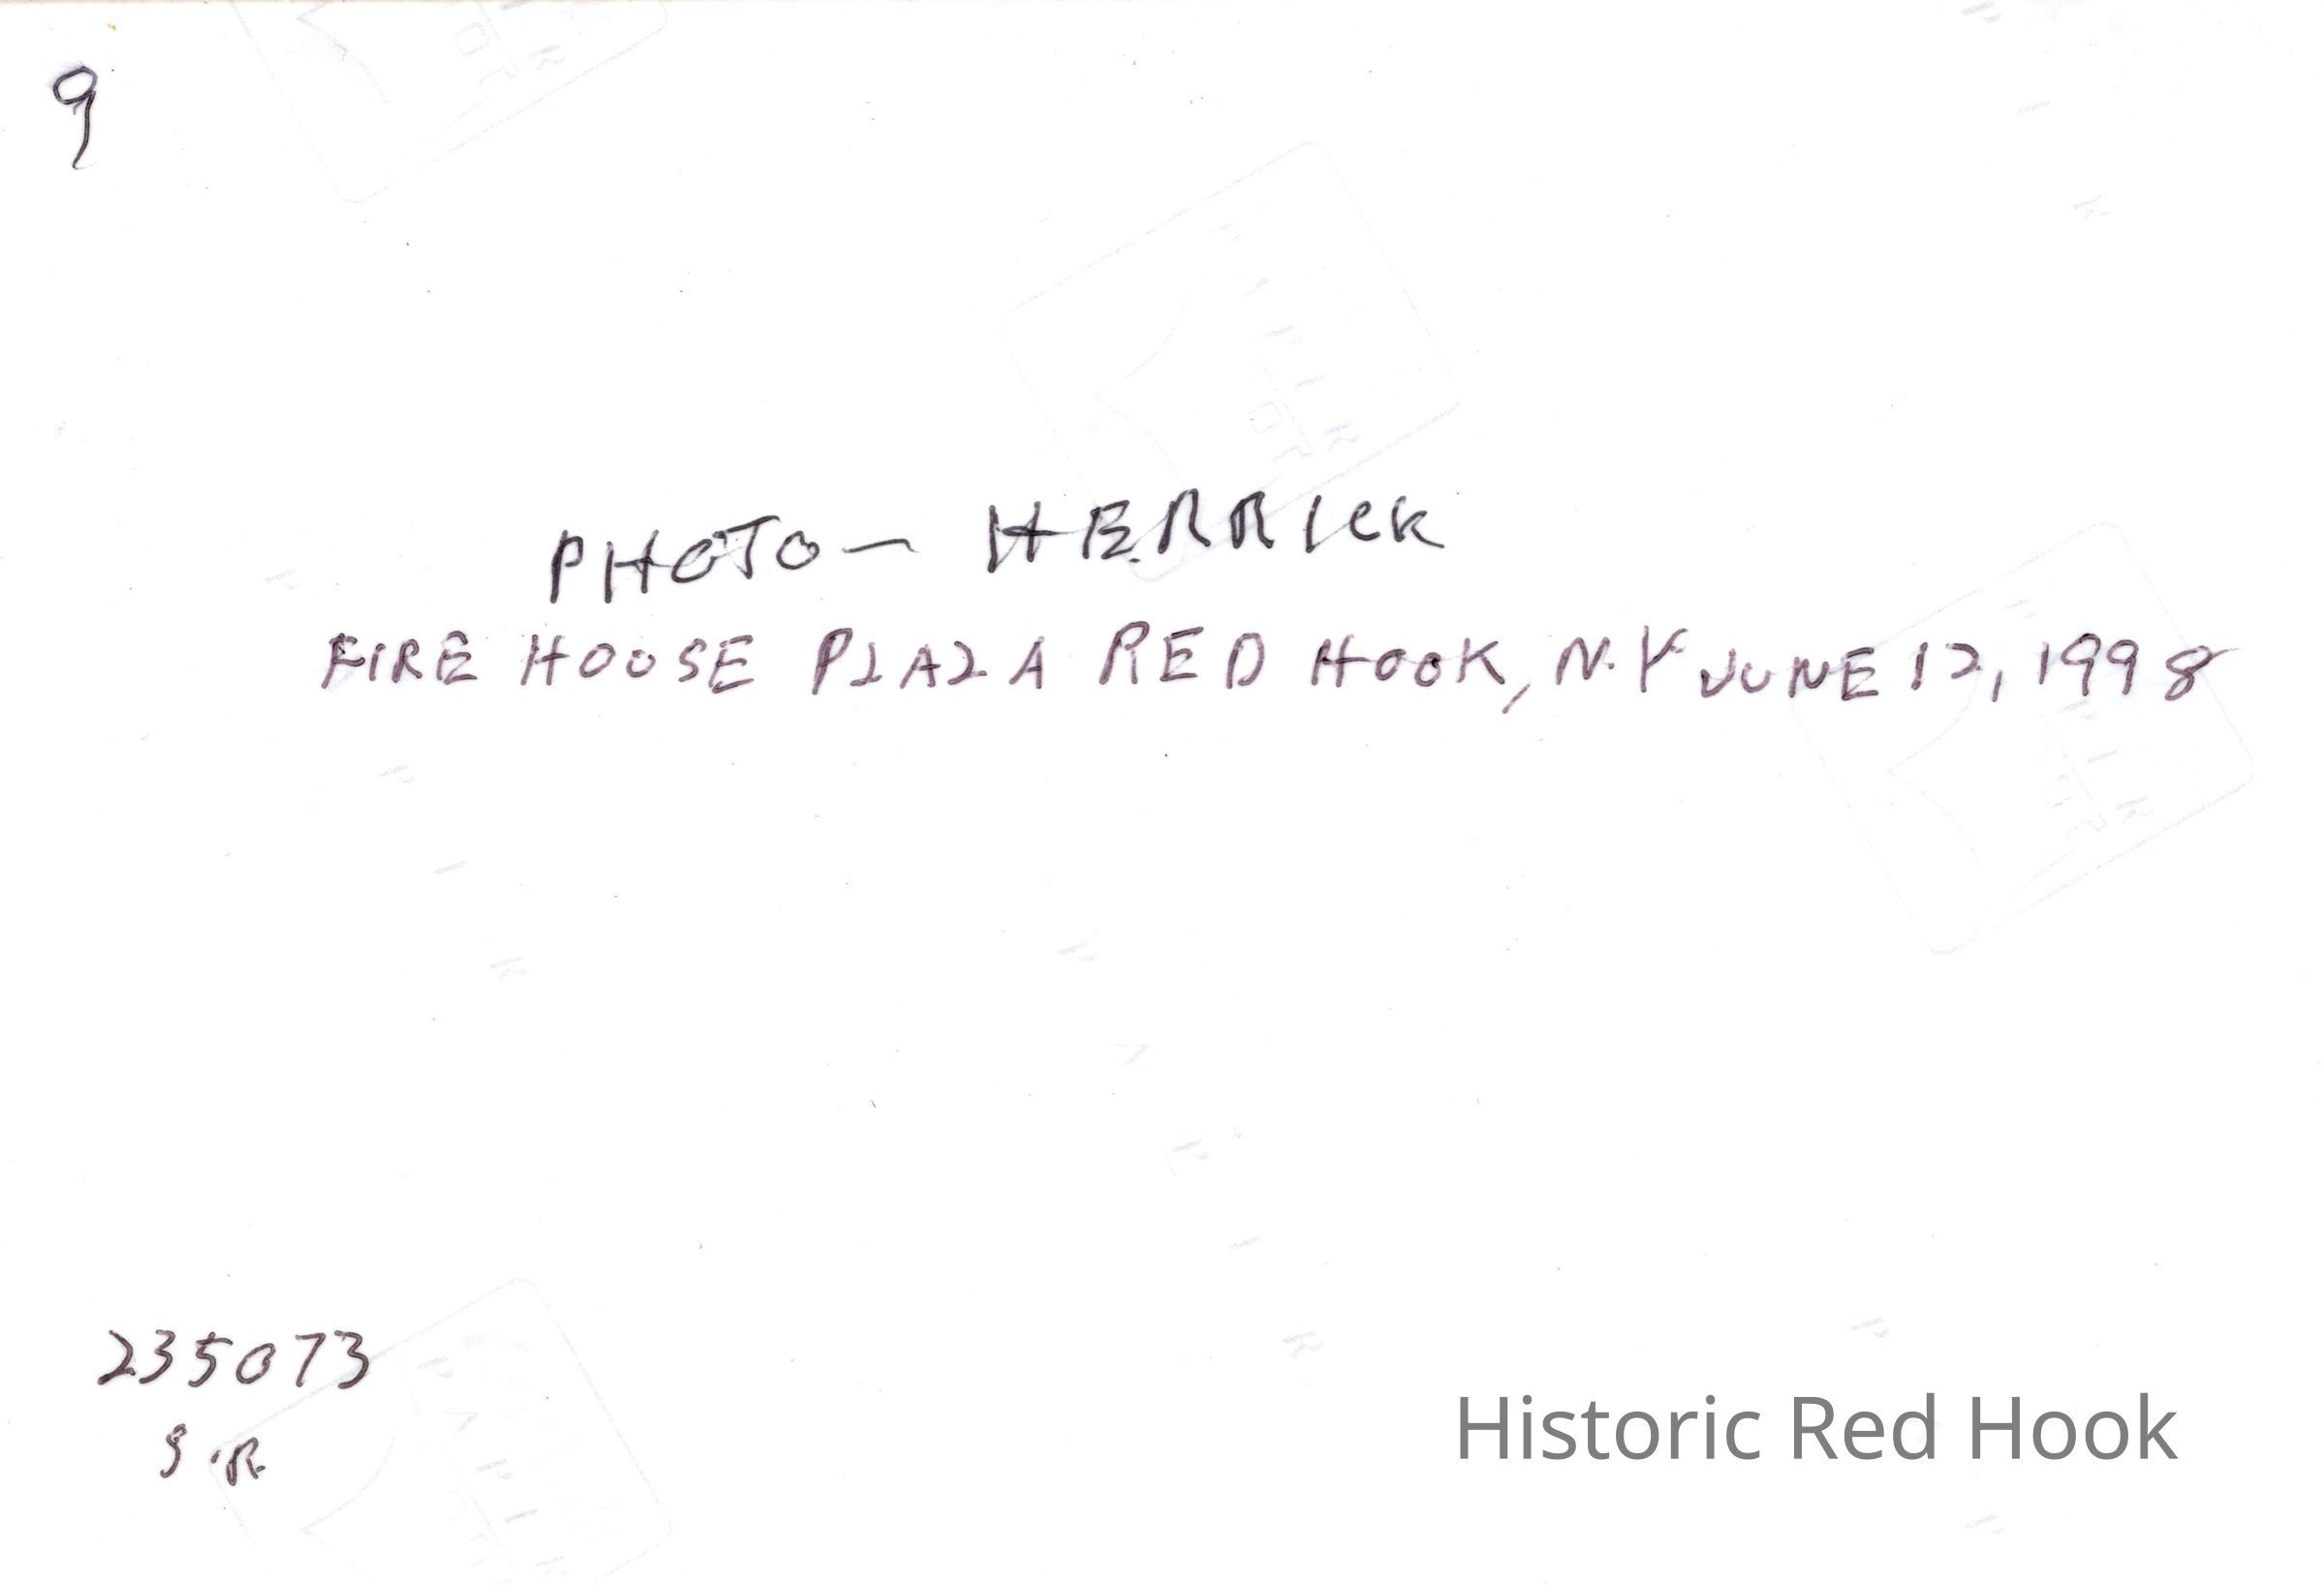 9
PHOTO — HERRICK
FIRE HOUSE PLAZA RED HOOK, N.Y JUNE 12, 1998
235073
S.R.
Historic Red Hook